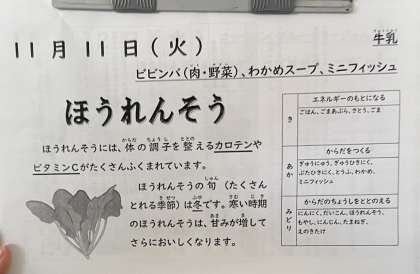 11月11日(火)
牛乳
ビビンバ(肉・野菜)、わかめスープ、ミニフィッシュ
ほうれんそう
ほうれんそうには、体の調子を整えるカロテンや
ビタミンCがたくさんふくまれています。
ほうれんそうの旬(たくさん
とれる季節)は冬です。寒い時期
のほうれんそうは、甘みが増して
さらにおいしくなります。
き
エネルギーのもとになる
ごはん、ごまあぶら、さとう、ごま
あか
からだをつくる
ぎゅうにゅう、ぎゅうひきにく、
ぶたひきにく、とうふ、わかめ、
ミニフィッシュ
みどり
からだのちょうしをととのえる
にんにく、だいこん、ほうれんそう、
もやし、にんじん、たまねぎ、
えのきたけ